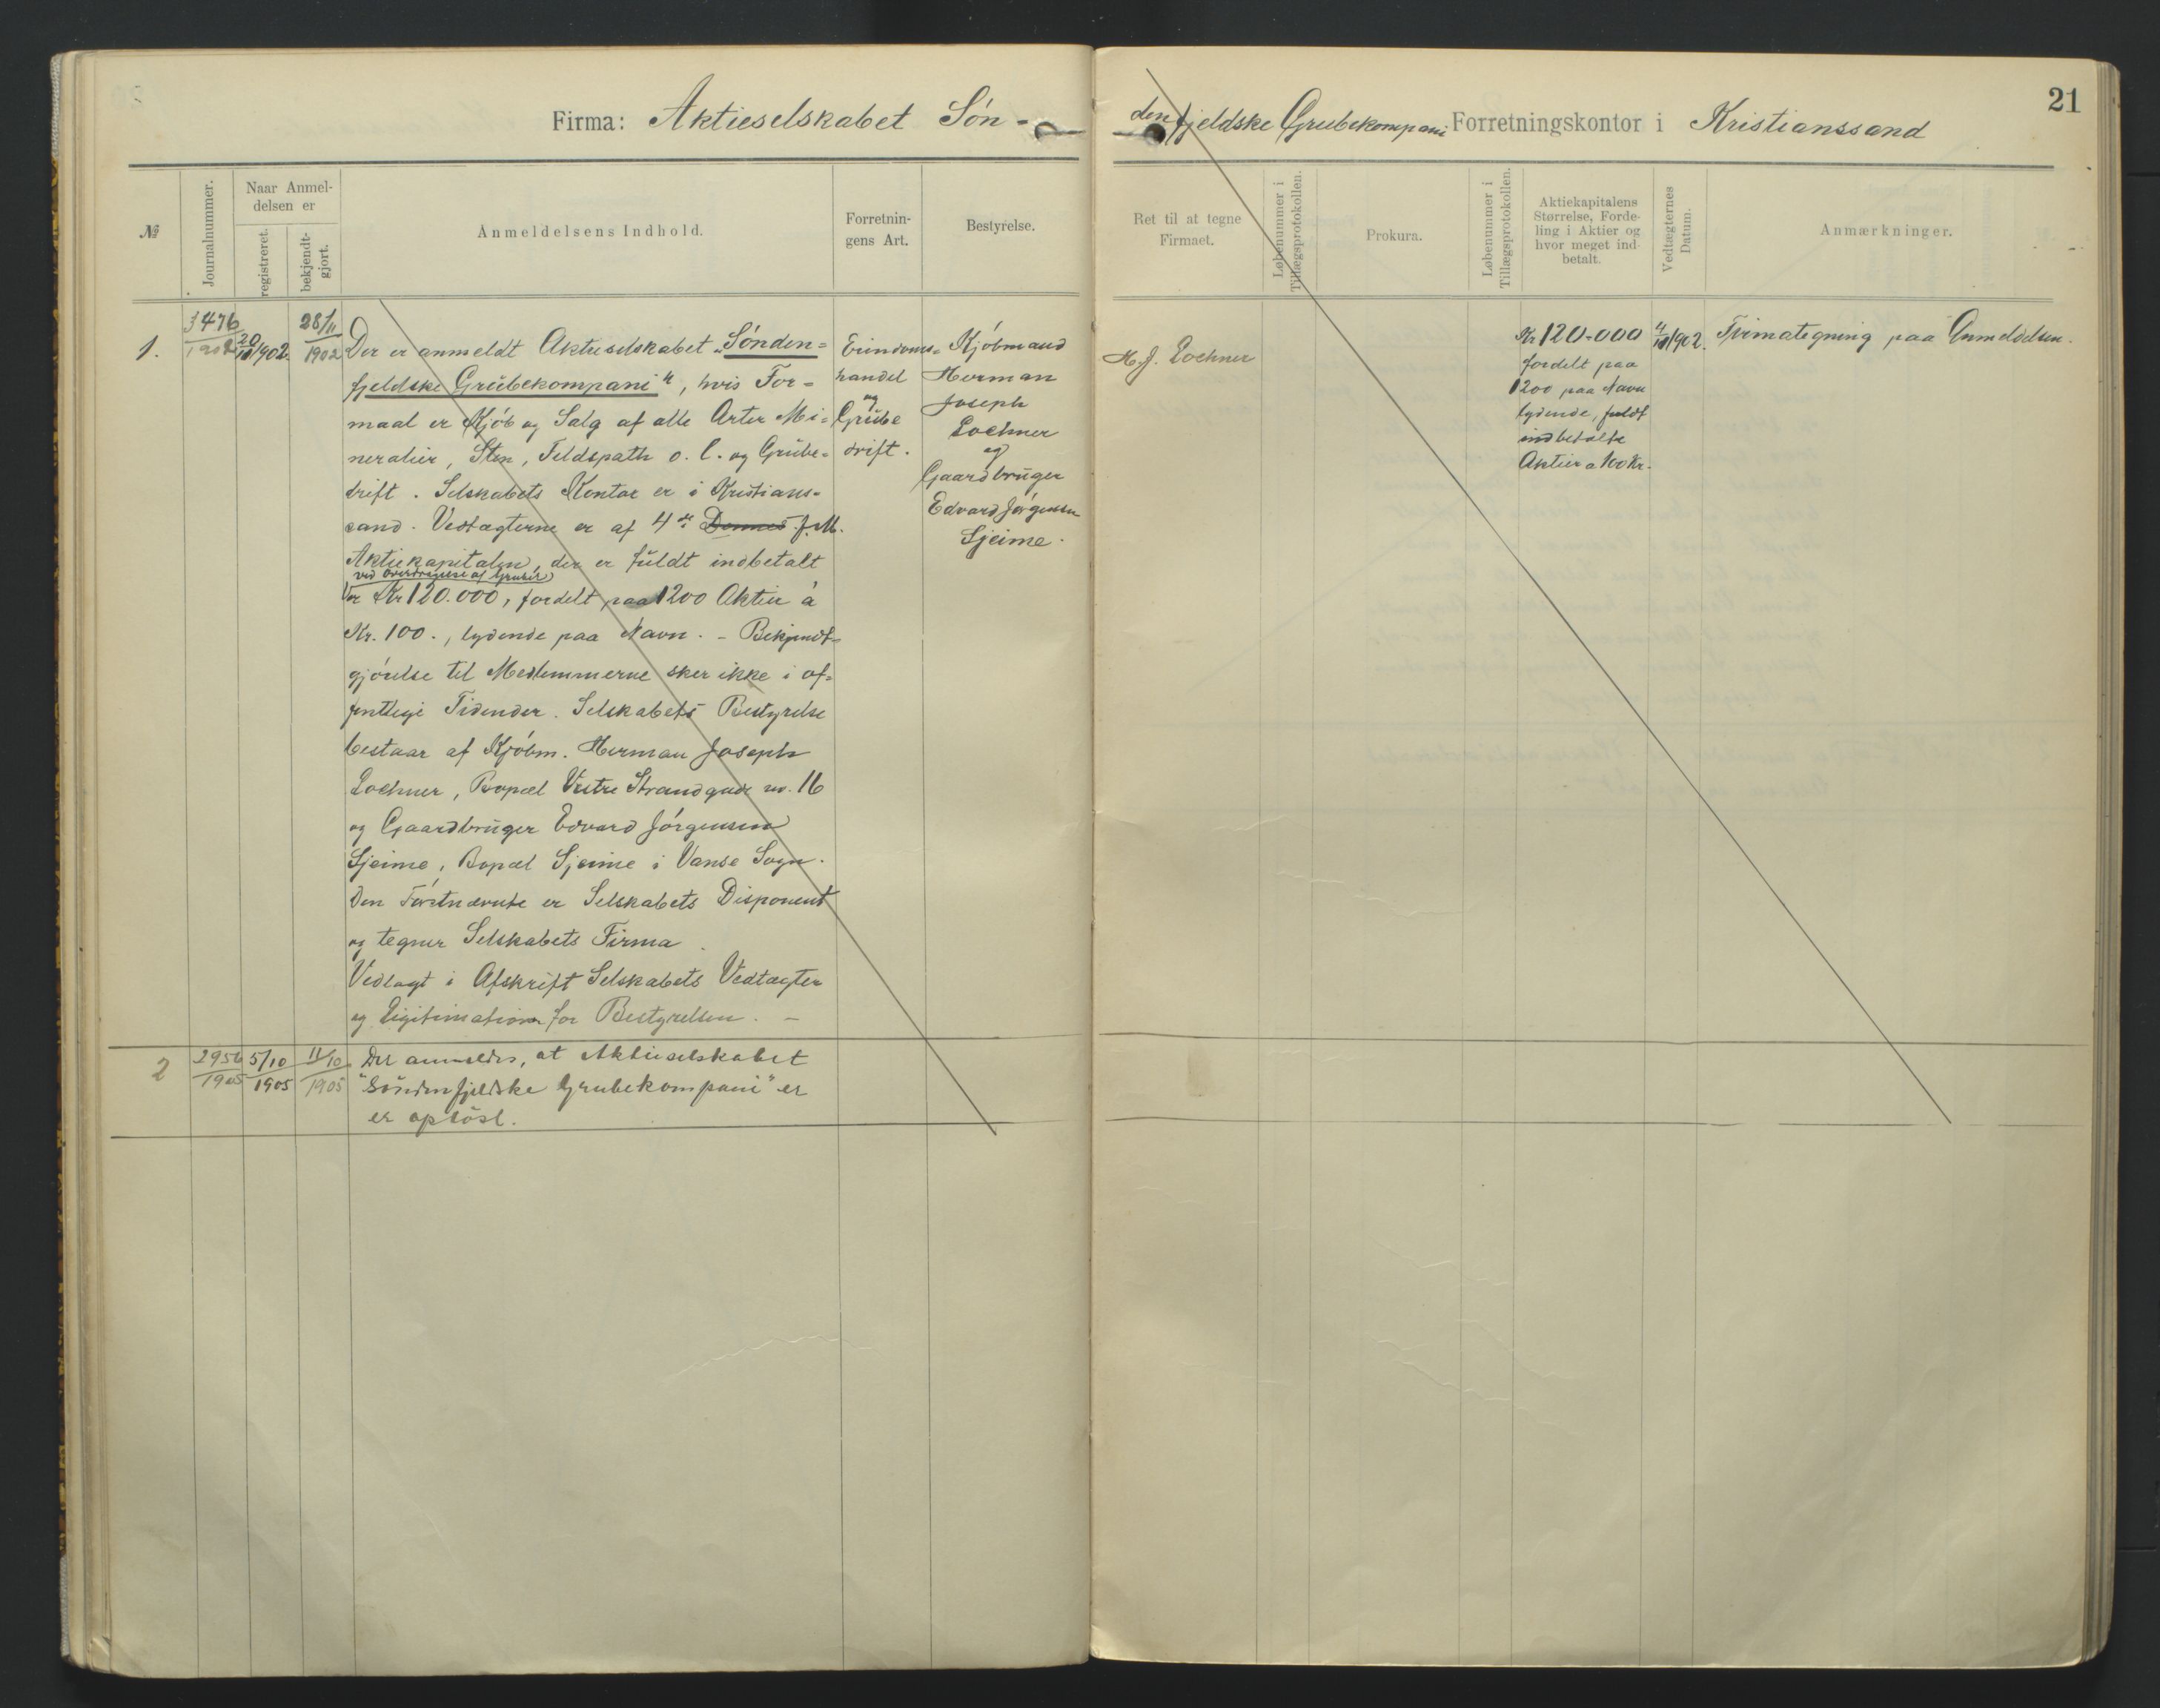 21
Firma: Aktieselskabet Søn-
denfjeldske Grubekompani Forretningskontor i Kristianssand
№
Journalnummer.
Naar Anmel-
delsen er
registreret.
bekjendt-
gjort.
Anmeldelsens Indhold.
Forretnin-
gens Art.
Bestyrelse.
Ret til at tegne
Firmaet.
Løbenummer i
Tillægsprotokollen.
Prokura.
Løbenummer i
Tillægsprotokollen.
Aktiekapitalens
Størrelse, Forde-
ling i Aktier og
hvor meget ind-
betalt.
Vedtægternes
Datum.
Anmærkninger.
1.
3476
1902
20/10/902.
28/11
1902
Der er anmeldt Aktieselskabet „Sønden=
fjeldske Grübekompani", hvis For=
maal er Kjöb og Salg af alle Arter Mi=
neralier, Sten, Feldspath o. l. og Grübe=
drift. Selskabets Kontor er i Kristians-
sand. Vedtægterne er af 4de Dennes f. M.
Aktiekapitalen, der er füldt indbetalt
ved Overdragelse af Gruber
er Kr 120.000, fordelt paa 1200 Aktier à
Kr. 100., lydende paa Navn. - Bekjendt=
gjörelse til Medlemmerne sker ikke i of=
fentlige Tidender. Selskabets Bestyrelse
bestaar af Kjöbm. Herman Joseph
Lochner, Bopæl Vestre Strandgade no. 16
og Gaardbrüger Edvard Jörgensen
Sjeime, Bopæl Sjeime i Vanse Sogn.
Den Förstnævnte er Selskabets Disponent
og tegner Selskabets Firma.
Vedlagt i Afskrift Selskabets Vedtægter
og Legitimation for Bestyrelsen. -
Eiendoms=
handel
og
Grübe
drift.
Kjöbmand
Herman
Joseph
Lochner
og
Gaardbrüger
Edvard Jörgensen
Sjeime.
H. J. Lochner
Kr 120.000
fordelt paa
1200 paa Navn
lydende, fuldt
indbetalte
Aktier a 100 Kr.
4/10/902.
Firmategning paa Anmeldelsen.
2
2956
1905
5/10
1905
11/10
1905
Det anmeldes, at Aktieselskabet
"Söndenfjeldske Grubekompani" er
er oplöst.